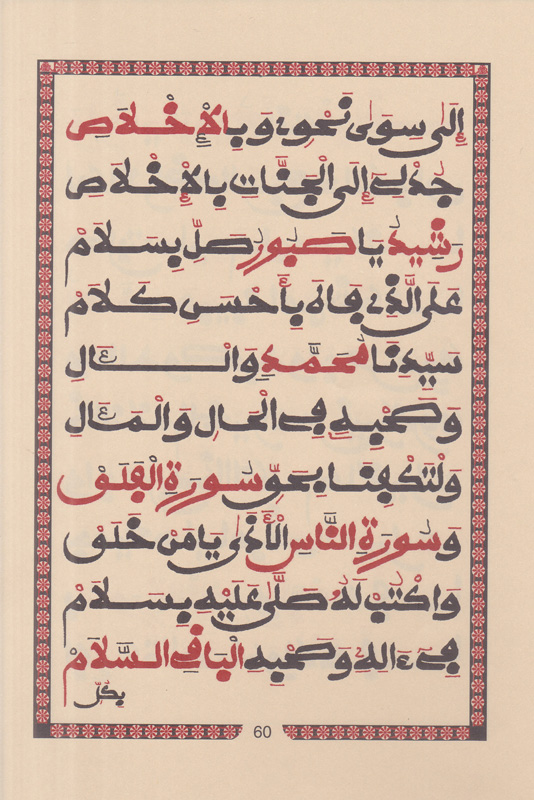 إِلَى سِوَى نَحْوِى وَبِالْإِخْلَاصِ
جُدْ لِى إِلَى الْجَنَّاتِ بِالْإِخْلَاصِ
رَشِيدُ يَا صَبُورُ صَلِّ بِسَلَامْ
عَلَى الَّذِى فَاهَ بِأَحْسَنِ كَلَامْ
سَيِّدِنَا مُحَمَّدٍ وَالْآلِ
وَصَحْبِهِ فِى الْحَالِ وَالْمَآلِ
وَلْتَكْفِنَا بِحَقِّ سُورَةِ الْفَلَقْ
وَسُورَةِ النَّاسِ الْأَذَى يَا مَنْ خَلَقْ
وَاكْتُبْ لَهُ صَلَّى عَلَيْهِ بِسَلَامْ
فِى ءَالِهِ وَصَحْبِهِ الْبَاقِى السَّلَامْ
بِكُلِّ
60